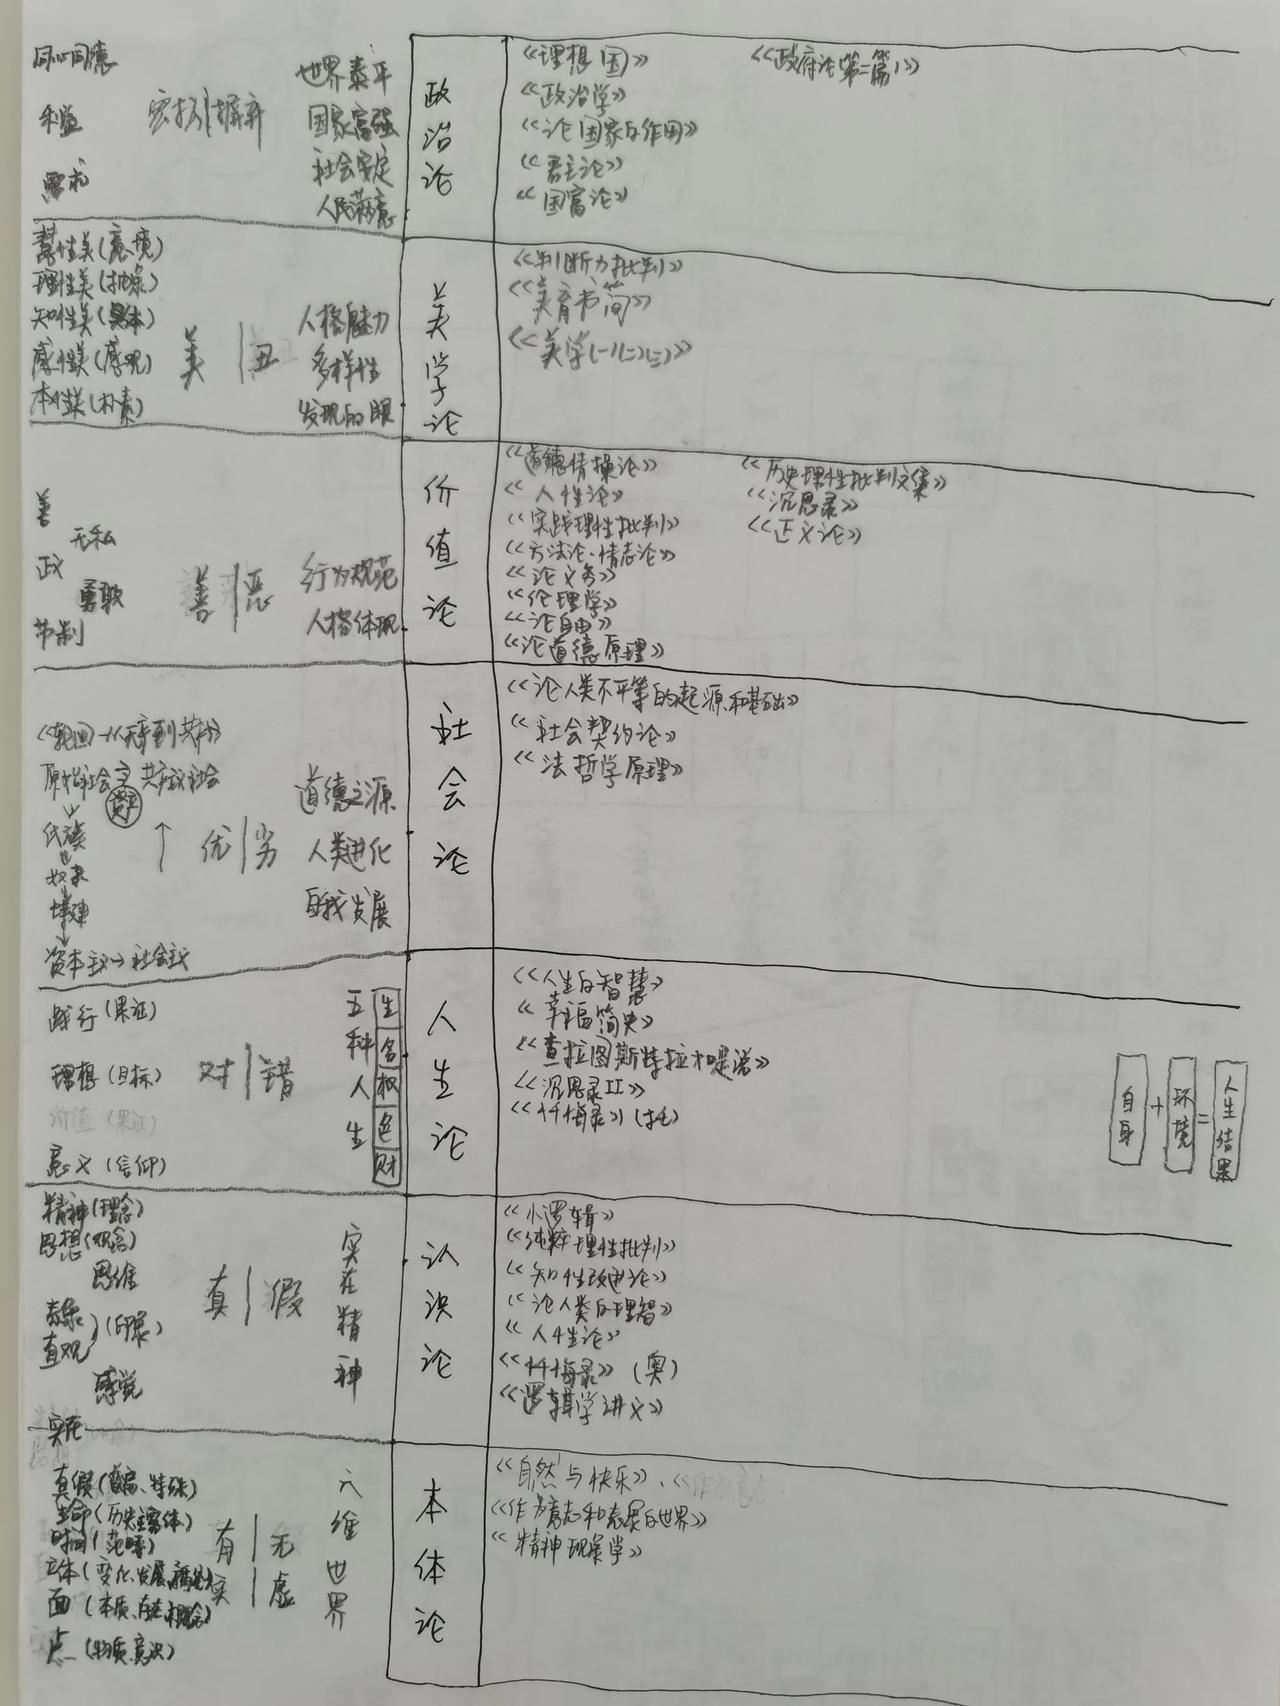 同心同德
利益
需求
世界泰平
国家富强
社会安定
人民满意
政治论
《理想国》
《政治学》
《论国家的作用》
《君主论》
《国富论》
《政府论(第二篇)》
慧性美(意境)
理性美(抽象)
知性美(具体)
感性美(感观)
本性美(朴素)
美|丑
人格魅力
多样性
发现的眼
美学论
《判断力批判》
《美育书简》
《美学(一)(二)(三)》
善
无私
政
勇敢
节制
善|恶
行为规范
人格体现
价值论
《道德情操论》
《人性论》
《实践理性批判》
《方法论·情志论》
《论义务》
《伦理学》
《论自由》
《论道德原理》
《历史理性批判文集》
《沉思录》
《正义论》
原始社会
共产主义社会
氏族
奴隶
封建
资本主义→社会主义
↑
优|劣
道德之源
人类进化
自我发展
社会论
《论人类不平等的起源和基础》
《社会契约论》
《法哲学原理》
践行(果证)
理想(目标)
价值(果证)
意义(信仰)
对|错
五种人生
生
名
权
色
财
人生论
《人生的智慧》
《幸福简史》
《查拉图斯特拉如是说》
《沉思录II》
《忏悔录》(托)
自身+环境=人生结果
精神(理念)
思想(观念)
思维
表象
直观
(印象)
感觉
实在
真|假
实在精神
认识论
《小逻辑》
《纯粹理性批判》
《知性改进论》
《论人类的理智》
《人性论》
《忏悔录》(奥)
《逻辑学讲义》
真假(普扁、特殊)
生命(历史主客体)
时间(范畴)
立体(变化、发展
面(本质、存在 概念)
点(物质、意识)
有|无
实|虚
六维世界
本体论
《自然与快乐》、
《作为意志和表象的世界》
《精神现象学》